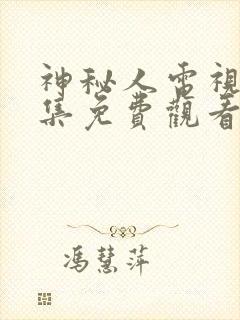 神秘人電視
集免費觀看
馮慧萍